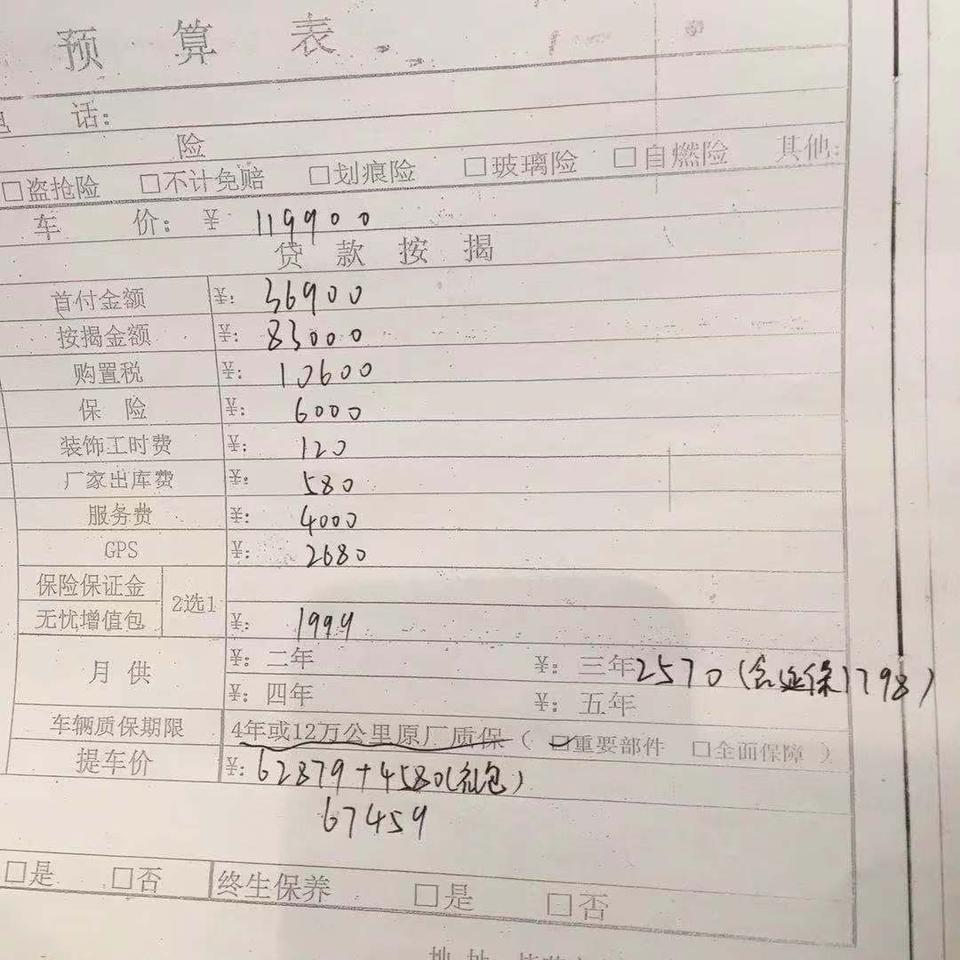 预算表
话:
险
□盗抢险 □不计免赔 □划痕险 □玻璃险 □自燃险 其他:
车价: ¥ 119900
贷款按揭
首付金额 ¥: 36900
按揭金额 ¥: 83000
购置税 ¥: 10600
保险 ¥: 6000
装饰工时费 ¥: 120
厂家出库费 ¥: 580
服务费 ¥: 4000
GPS ¥: 2680
保险保证金 2选1
无忧增值包 ¥: 1999
月供 ¥: 二年 ¥: 三年 2570 (含延保1798)
¥: 四年 ¥: 五年
车辆质保期限 4年或12万公里原厂质保 ( □重要部件 □全面保障 )
提车价 ¥: 62879+4580(礼包)
67459
□是 □否 终生保养 □是 □否
地址